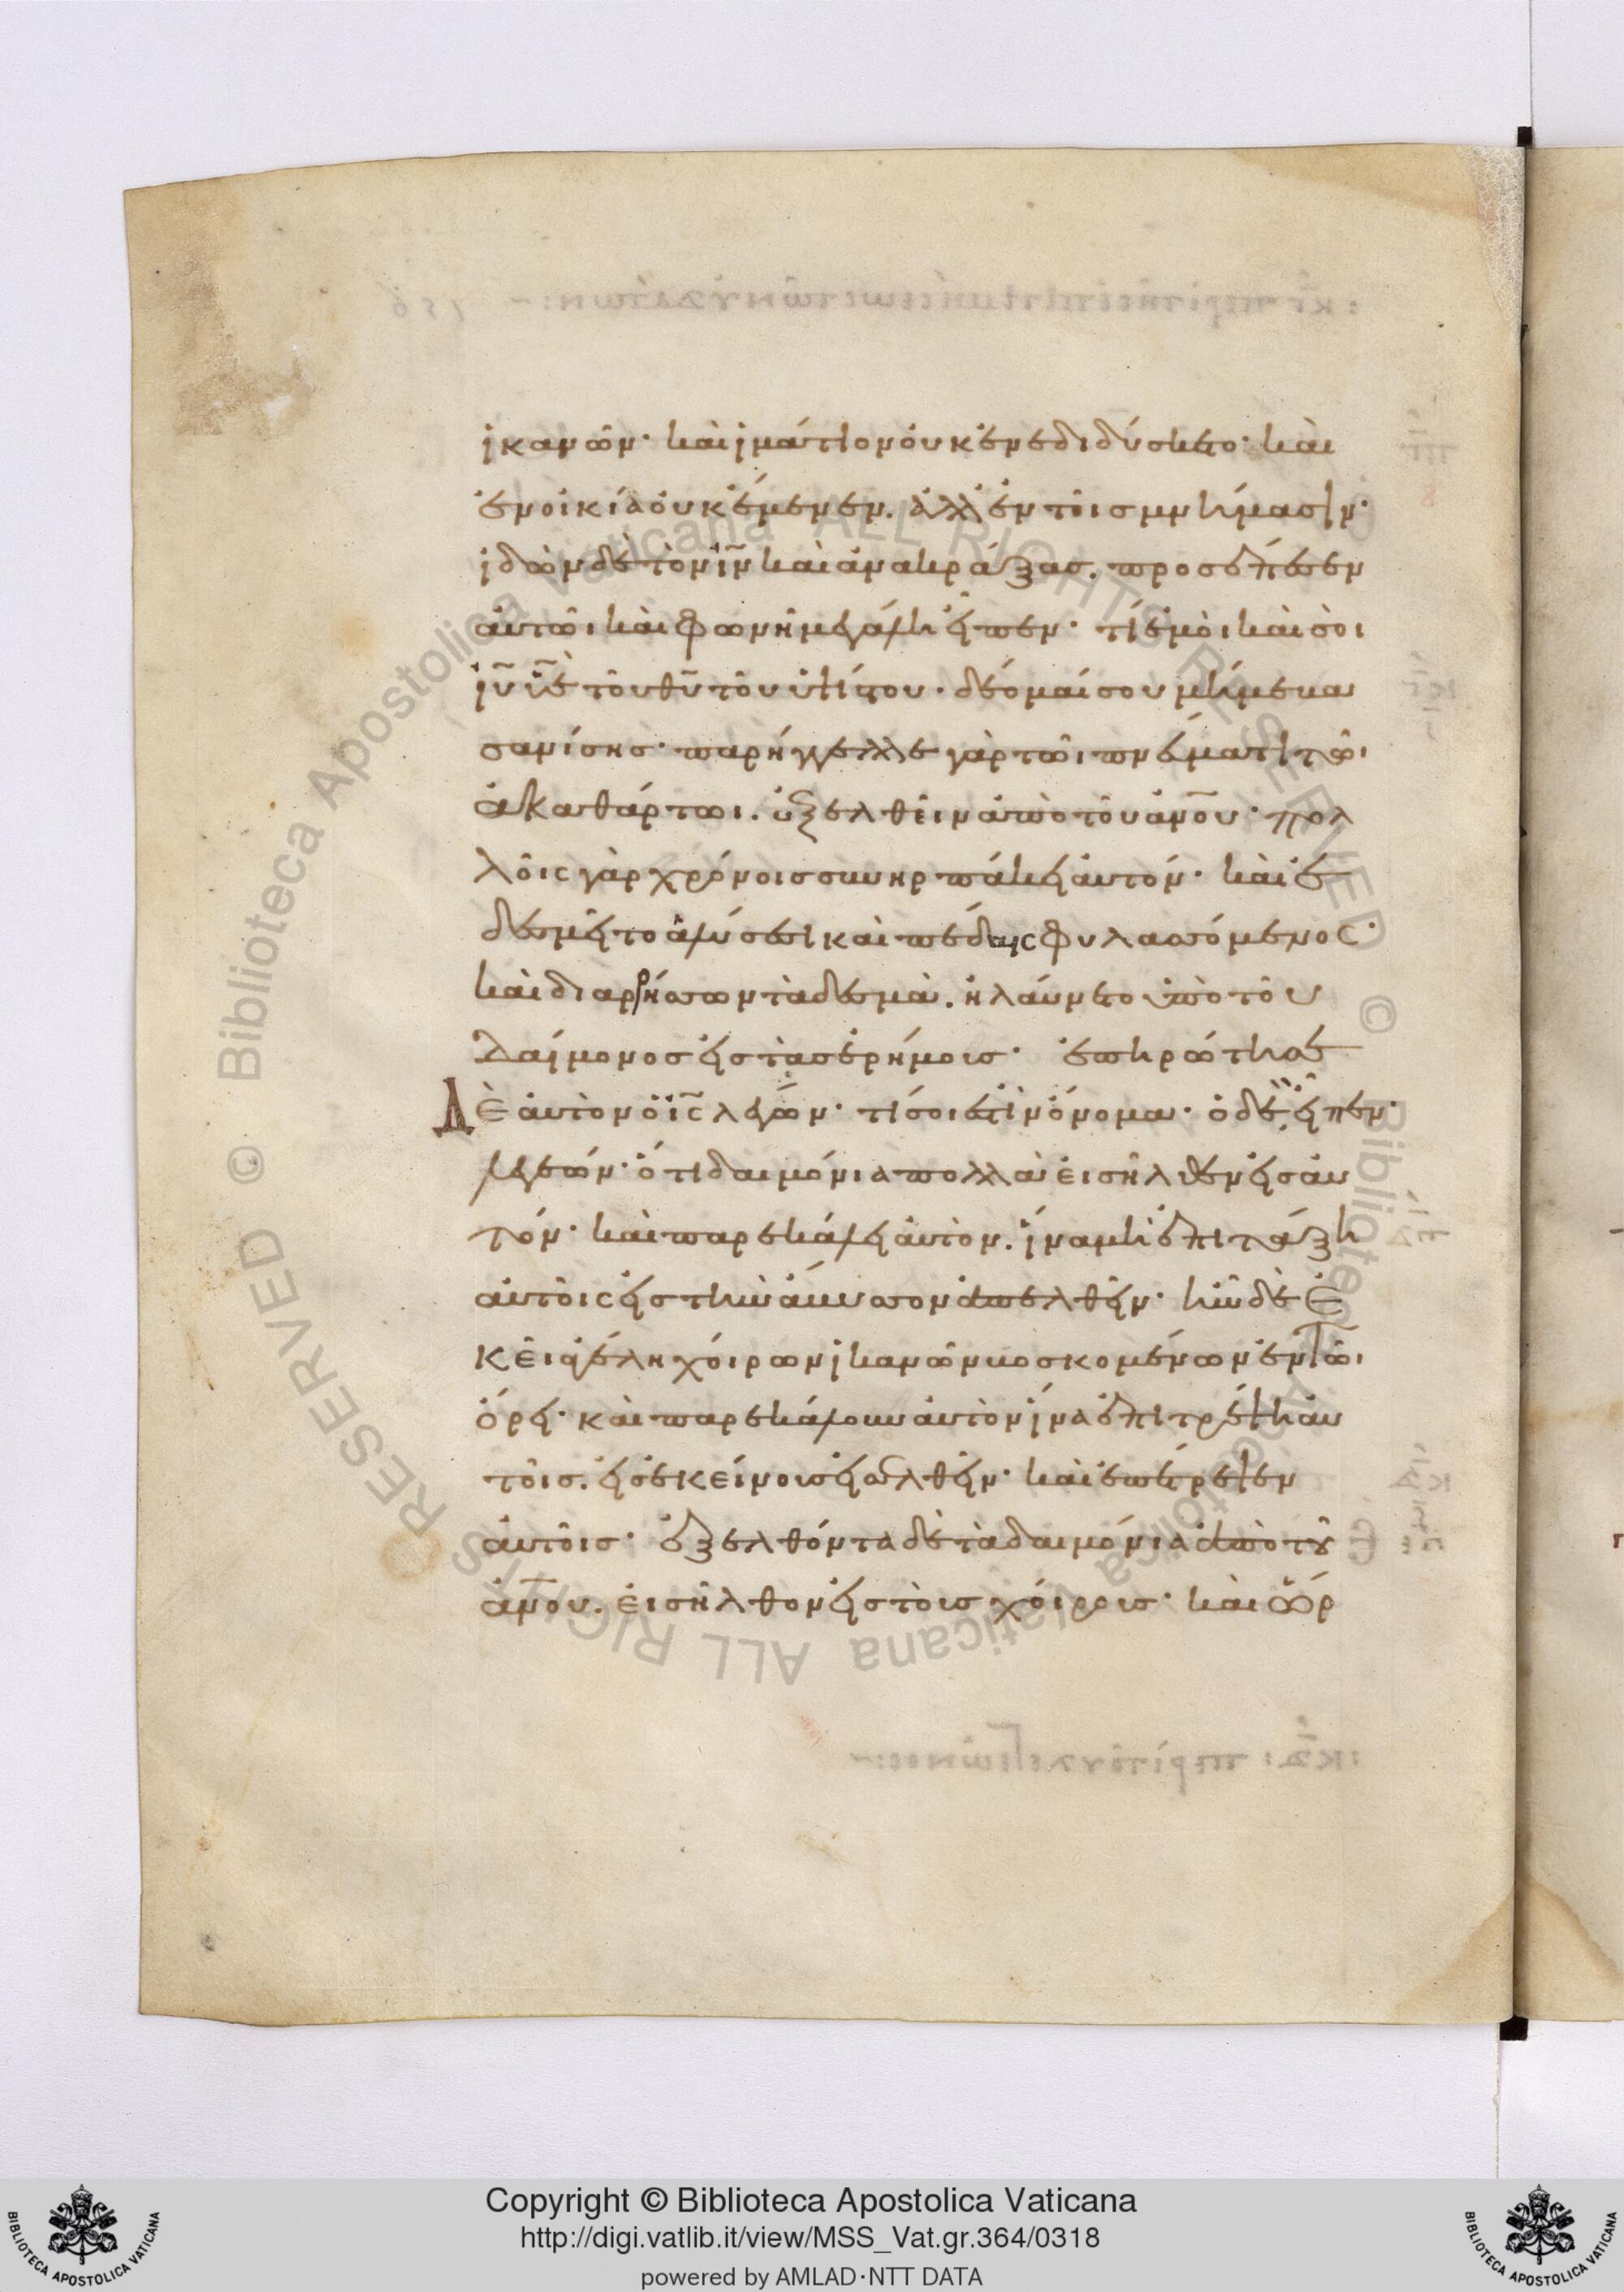 ἱκανῶν· καὶ ἱμάτιον οὐκ ἐνεδιδύσκετο· καὶ
ἐν οἰκία οὐκ ἔμενεν. ἀλλ ἐν τοῖς μνήμασιν·
ἰδὼν δὲ τὸν ἰν̅ καὶ ἀνακράξας. προσέπεσεν
αὐτῶι καὶ φωνῆ μεγάλη εἶπεν· τί ἐμοὶ καὶ σοὶ
ἰυ̅ υἱὲ τοῦ θυ̅ τοῦ ὑψίστου. δέομαί σου μή με βα
σανίσης· παρήγγελλε γὰρ τῶι πνεύματι τῶι
ἀκαθάρτωι. ἐξελθεῖν ἀπὸ τοῦ ἀνου̅· πολ
λοῖς γὰρ χρόνοις συνηρπάκει αὐτόν· καὶ ἐ
δεσμεῖτο ἁλύσεσι καὶ πέδαις φυλασσόμενος·
καὶ διαρρήσσων τὰ δεσμὰ. ἠλαύνετο ὑπὸ τοῦ
δαίμονος εἰς τὰς ἐρήμοις· ἐπηρώτησε
Δὲ αὐτὸν ὁ ἰς̅ λέγων· τί σοι ἐστὶν ὄνομα· ὁ δὲ εἶπεν·
λεγεών· ὅτι δαιμόνια πολλὰ εἰσῆλθεν εἰς αὐ
τόν· καὶ παρεκάλει αὐτὸν. ἵνα μὴ ἐπιτάξη
αὐτοῖς εἰς τὴν ἄβυσσον ἀπελθεῖν· ἦν δὲ ἐ
κεῖ ἀγέλη χοίρων ἱκανῶν βοσκομένων ἐν τῶι
ὄρει· καὶ παρεκάλουν αὐτὸν ἵνα ἐπιτρέψη αὐ
τοῖς. εἰς ἐκείνους εἰσελθεῖν· καὶ ἐπέτρεψεν
αὐτοῖς· ἐξελθόντα δὲ τὰ δαιμόνια ἀπὸ τοῦ
ἀνου̅. εἰσῆλθον εἰς τοὺς χοίρους· καὶ ὥρ
Copyright © Biblioteca Apostolica Vaticana
http://digi.vatlib.it/view/MSS_Vat.gr.364/0318
powered by AMLAD·NTT DATA